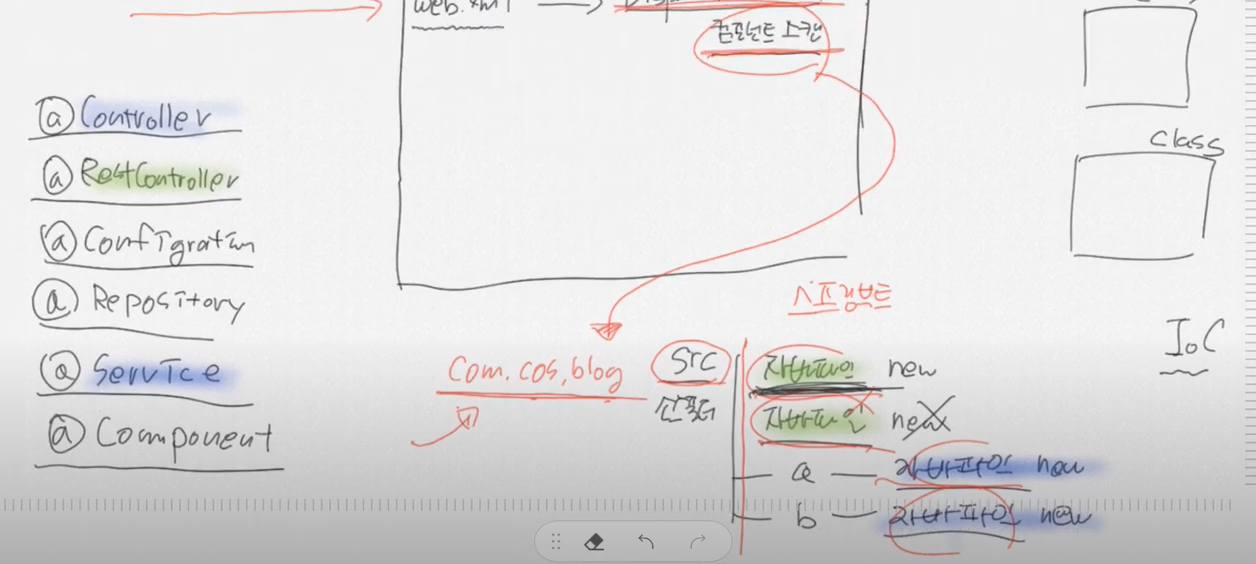 web.xml
컴포넌트 스캔
@Controller
@RestController
@Configration
@Repository
@Service
@Component
class
스프링부트
IoC
com.cos.blog
src
자바파일 new
자바파일 new
a 자바파일 new
b 자바파일 new